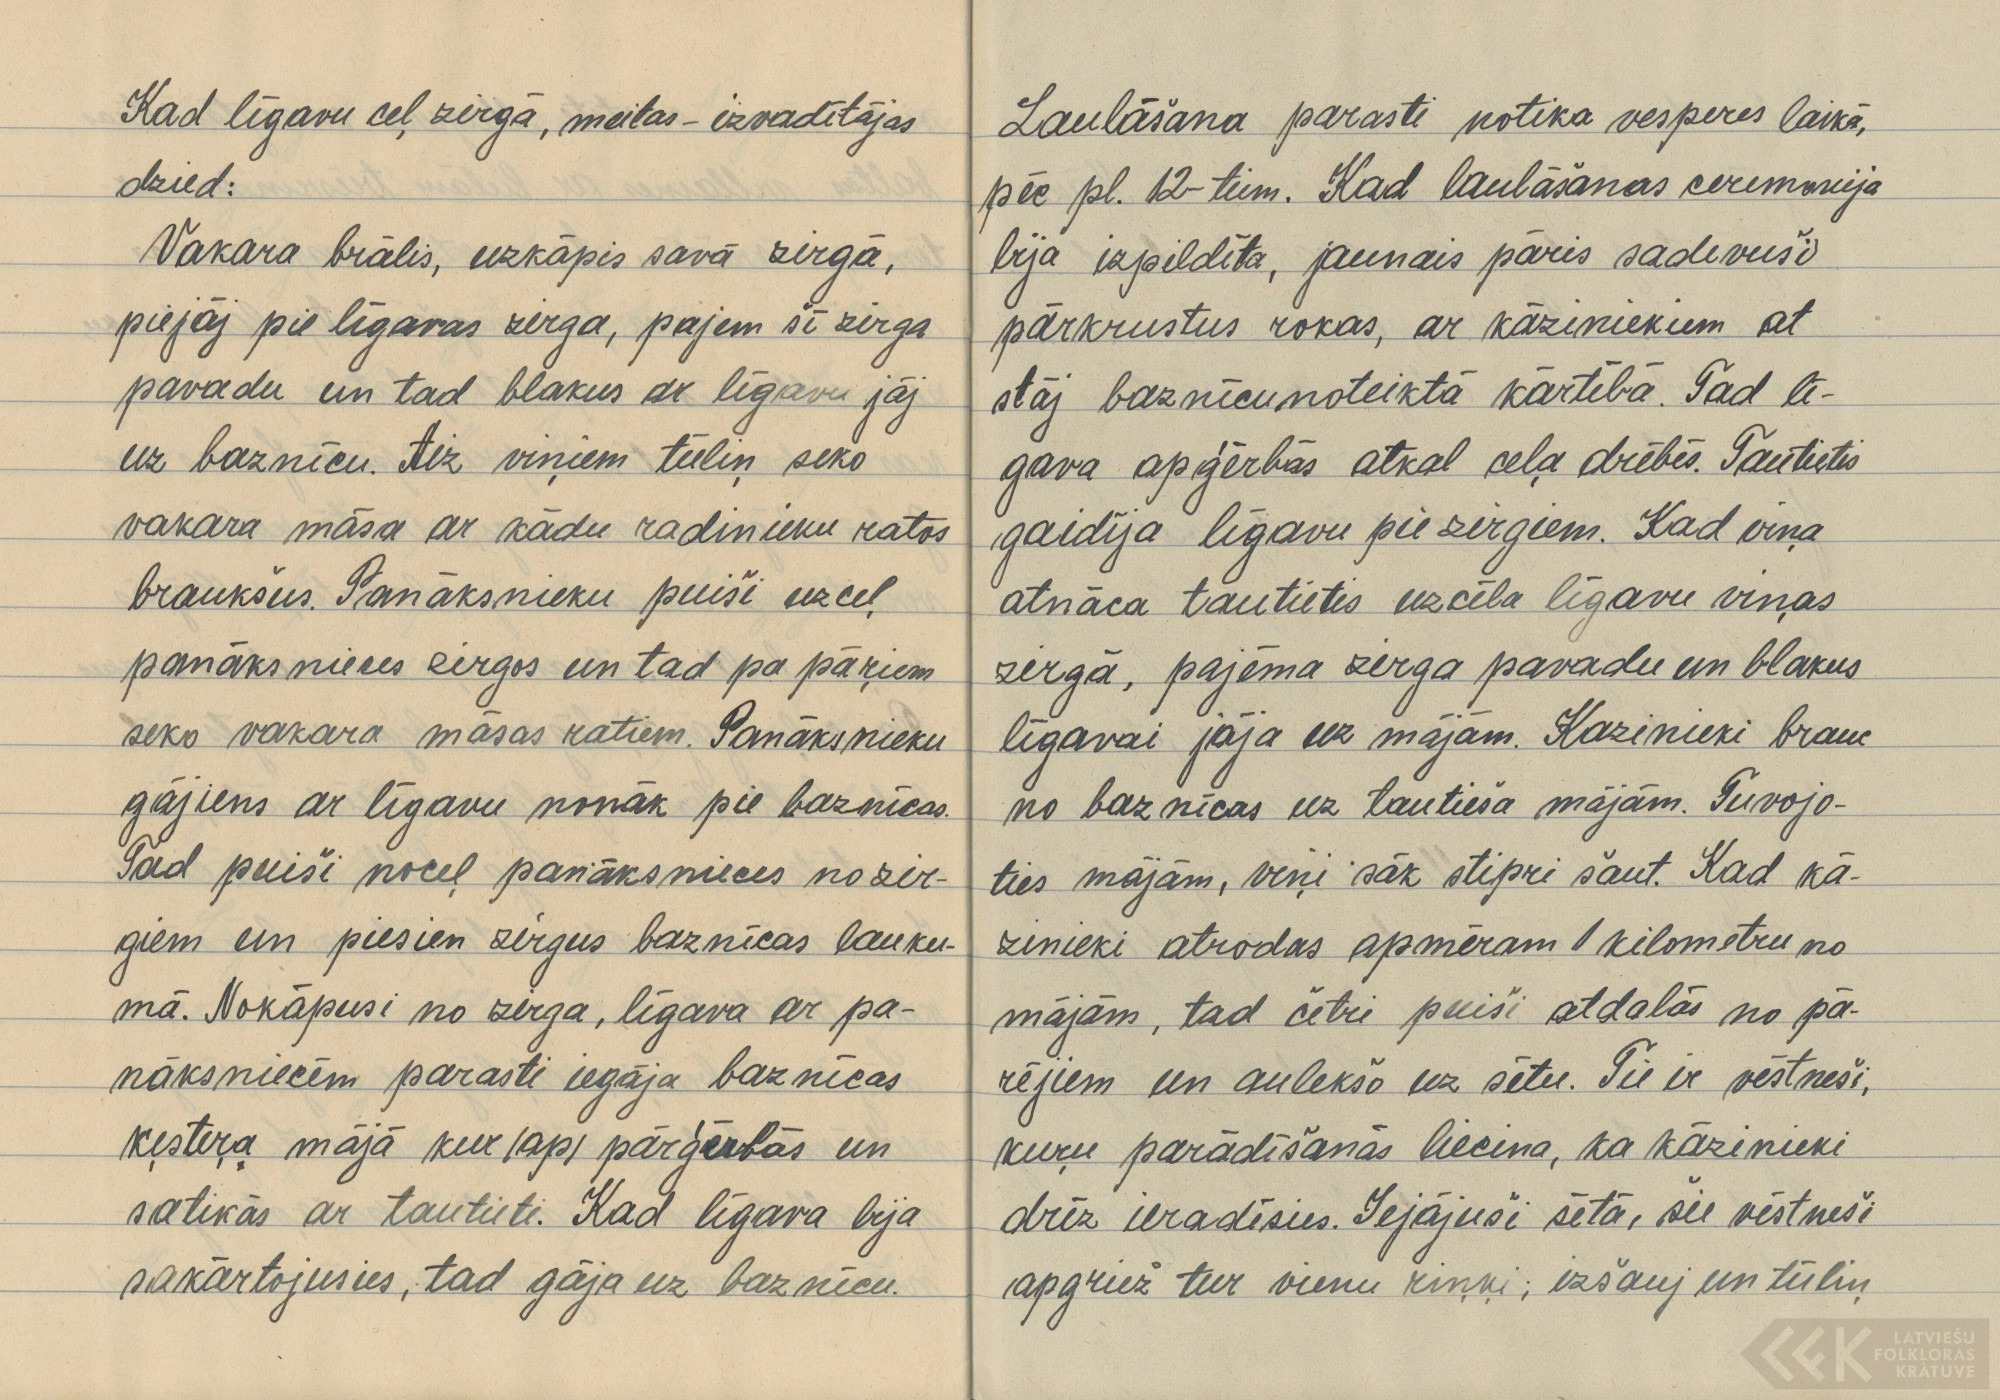 Kad līgavu ceļ zirgā, meitas - izvadītājas
dzied:
Vakara brālis, uzkāpis savā zirgā,
piejāj pie līgavas zirga, pajem šī zirga
pavadu un tad blakus ar līgavu jāj
uz baznīcu. Aiz viņiem tūliņ seko
vakara māsa ar kādu radinieku ratos
braukšus. Panāksnieku puiši uzceļ
panāksnieces zirgos un tad pa pāŗiem
seko vakara māsas ratiem. Panāksnieku
gājiens ar līgavu nonāk pie baznīcas.
Tad puiši noceļ panāksnieces no zir-
giem un piesien zirgus baznīcas lauku-
mā. Nokāpusi no zirga, līgava ar pa-
nāksniecēm parasti iegāja baznīcas
ķesteŗa mājā kur /ap/ pārģērbās un
satikās ar tautieti. Kad līgava bija
sakārtojusies, tad gāja uz baznīcu.
Laulāšana parasti notika vesperes laikā,
pēc pl. 12-tiem. Kad laulāšanas ceremonija
bija izpildīta, jaunais pāris sadevuši
pārkrustus rokas, ar kāziniekiem at
stāj baznīcu noteiktā kārtībā. Tad lī-
gava apģērbās atkal ceļa drēbēs. Tautietis
gaidīja līgavu pie zirgiem. Kad viņa
atnāca tautietis uzcēla līgavu viņas
zirgā, pajēma zirga pavadu un blakus
līgavai jāja uz mājām. Kazinieki brauc
no baznīcas uz tautieša mājām. Tuvojo-
ties mājām, viņi sāk stipri šaut. Kad kā-
zinieki atrodas apmēram 1 kilometru no
mājām, tad četri puiši atdalās no pā-
rējiem un aulekšo uz sētu. Tie ir vēstneši,
kuŗu parādīšanās liecina, ka kāzinieki
drīz ieradīsies. Iejājuši sētā, šie vēstneši
apgriež tur vienu riņķi; izšauj un tūliņ
LATVIEŠU
FOLKLORAS
KRĀTUVE